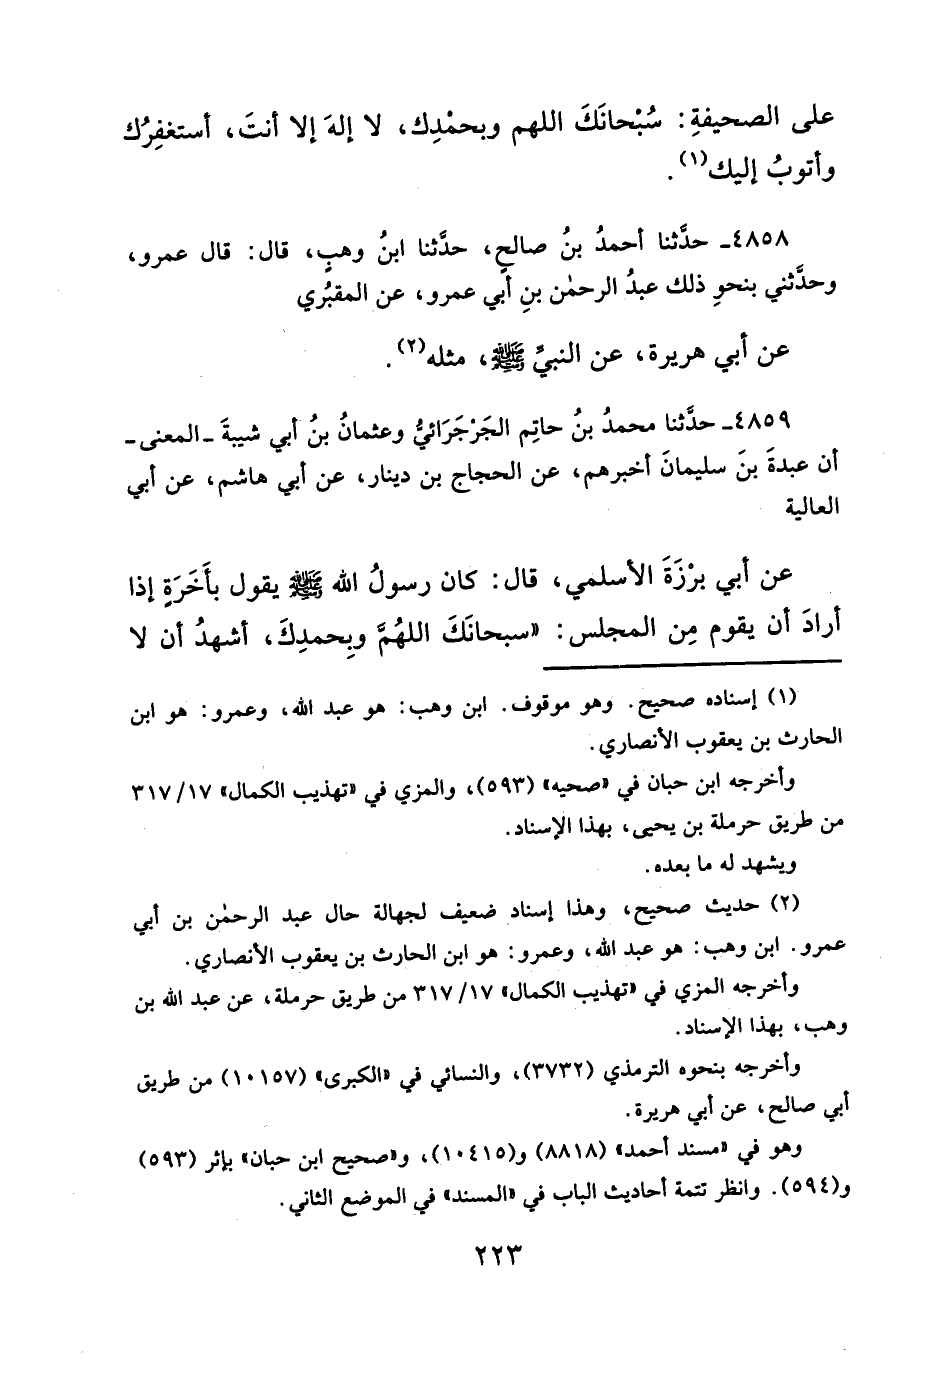 على الصحيفةِ: سُبْحانَكَ اللهم وبحمْدِك، لا إلهَ إلا أنتَ، أستغفِرُك
وأتوبُ إليك(١).
٤٨٥٨ـ حدَّثنا أحمدُ بنُ صالحٍ، حدَّثنا ابنُ وهبٍ، قال: قال عمرو،
وحدَّثني بنحوِ ذلك عبدُ الرحمٰن بنِ أبي عمرو، عن المقبُري
عن أبي هريرة، عن النبيِّ ﷺ، مثله(٢).
٤٨٥٩ـ حدَّثنا محمدُ بنُ حاتِم الجَرْجَرَائيُّ وعثمانُ بنُ أبي شيبةَ ـ المعنى ـ
أن عبدةَ بنَ سليمانَ أخبرهم، عن الحجاج بن دينار، عن أبي هاشم، عن أبي
العالية
عن أبي برْزَةَ الأسلمي، قال: كان رسولُ الله ﷺ يقول بأَخَرَةٍ إذا
أرادَ أن يقوم مِن المجلس: «سبحانَكَ اللهُمَّ وبِحمدِكَ، أشهدُ أن لا
(١) إسناده صحيح. وهو موقوف. ابن وهب: هو عبد الله، وعمرو: هو ابن
الحارث بن يعقوب الأنصاري.
وأخرجه ابن حبان في «صحيه» (٥٩٣)، والمزي في «تهذيب الكمال» ١٧/ ٣١٧
من طريق حرملة بن يحيى، بهذا الإسناد.
ويشهد له ما بعده.
(٢) حديث صحيح، وهذا إسناد ضعيف لجهالة حال عبد الرحمٰن بن أبي
عمرو. ابن وهب: هو عبد الله، وعمرو: هو ابن الحارث بن يعقوب الأنصاري.
وأخرجه المزي في «تهذيب الكمال» ١٧/ ٣١٧ من طريق حرملة، عن عبد الله بن
وهب، بهذا الإسناد.
وأخرجه بنحوه الترمذي (٣٧٣٢)، والنسائي في «الكبرى» (١٠١٥٧) من طريق
أبي صالح، عن أبي هريرة.
وهو في «مسند أحمد» (٨٨١٨) و(١٠٤١٥)، و«صحيح ابن حبان» بإثر (٥٩٣)
و(٥٩٤). وانظر تتمة أحاديث الباب في «المسند» في الموضع الثاني.
٢٢٣